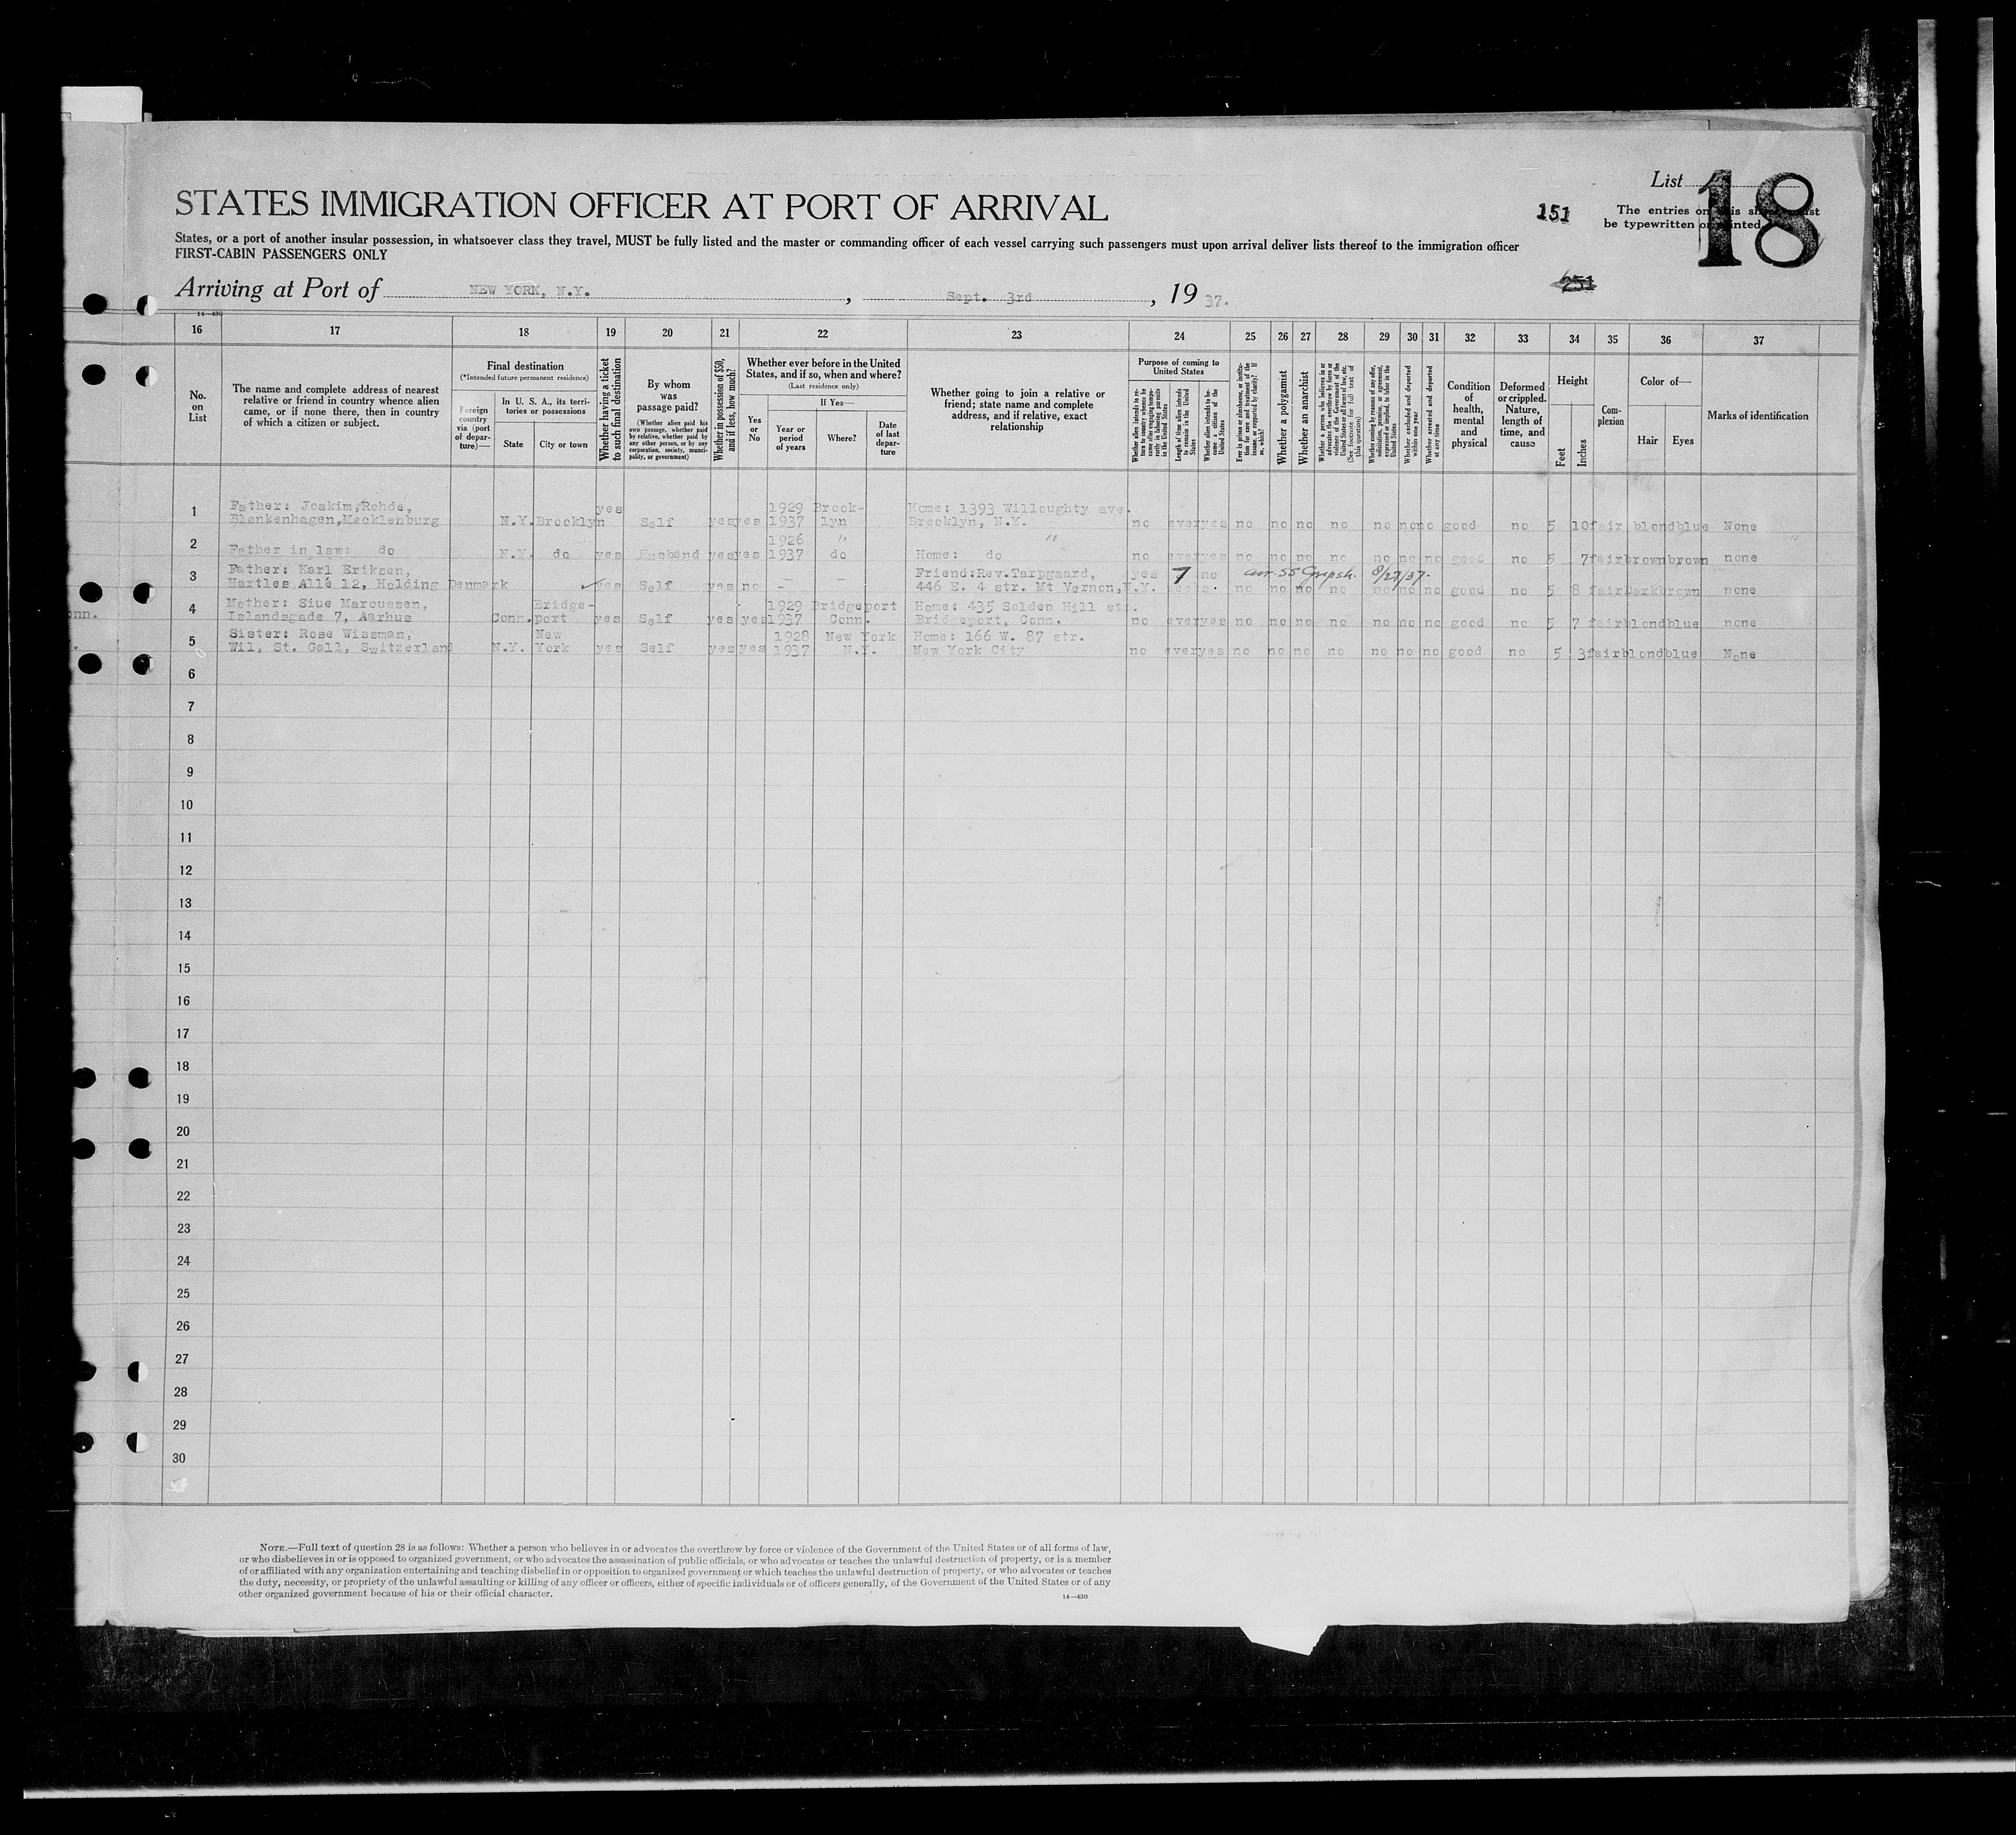 List 18
STATES IMMIGRATION OFFICER AT PORT OF ARRIVAL
151
The entries on this sheet must
be typewritten or printed
States, or a port of another insular possession, in whatsoever class they travel, MUST be fully listed and the master or commanding officer of each vessel carrying such passengers must upon arrival deliver lists thereof to the immigration officer
FIRST-CABIN PASSENGERS ONLY
Arriving at Port of NEW YORK, N.Y. , Sept. 3rd , 19 37.
251
14—430
16 17 18 19 20 21 22 23 24 25 26 27 28 29 30 31 32 33 34 35 36 37
No. on List
The name and complete address of nearest relative or friend in country whence alien came, or if none there, then in country of which a citizen or subject.
Final destination
(*Intended future permanent residence)
Foreign country via (port of departure)—
In U. S. A., its territories or possessions
State
City or town
Whether having a ticket to such final destination
By whom was passage paid?
(Whether alien paid his own passage, whether paid by relative, whether paid by any other person, or by any corporation, society, municipality, or government)
Whether in possession of $50, and if less, how much?
Whether ever before in the United States, and if so, when and where?
(Last residence only)
Yes or No
If Yes—
Year or period of years
Where?
Date of last departure
Whether going to join a relative or friend; state name and complete address, and if relative, exact relationship
Purpose of coming to United States
Whether alien intends to return to country whence he came after engaging temporarily in laboring pursuits in the United States
Length of time alien intends to remain in the United States
Whether alien intends to become a citizen of the United States
Ever in prison or almshouse, or institution for care and treatment of the insane, or supported by charity? If so, which?
Whether a polygamist
Whether an anarchist
Whether a person who believes in or advocates the overthrow by force or violence of the Government of the United States or all forms of law, etc. (See footnote for full text of this question)
Whether coming by reasons of any offer, solicitation, promise, or agreement, expressed or implied, to labor in the United States
Whether excluded and deported within one year
Whether arrested and deported at any time
Condition of health, mental and physical
Deformed or crippled. Nature, length of time, and cause
Height
Feet
Inches
Complexion
Color of—
Hair
Eyes
Marks of identification
1 Father: Joakim,Rohde, yes 1929 Brook- Home: 1393 Willoughty ave.
Blankenhagen,Mecklenburg N.Y. Brooklyn Self yes yes 1937 lyn Brooklyn, N.Y. no ever yes no no no no no no no good no 5 10 fair blond blue None
2 1926 " "
Father in law: do N.Y. do yes Husband yes yes 1937 do Home: do no ever yes no no no no no no no good no 5 7 fair brown brown none
3 Father: Karl Eriksen, — — Friend:Rev.Tarpgaard, yes 7 no arr. SS Gripsh. 8/27/37.
Hartles Allé 12, Holding Denmark yes Self yes no - 446 E. 4 str. Mt Vernon,N.Y. weeks. no no no no no no no good no 5 8 fair Dark brown none
4 Mother: Sine Marcussen, Bridge- 1929 Bridgeport Home: 435 Golden Hill str.
onn. Islandsgade 7, Aarhus Conn. port yes Self yes yes 1937 Conn. Bridgeport, Conn. no ever yes no no no no no no no good no 5 7 fair blond blue none
5 Sister: Rose Wissman, New 1928 New York Home: 166 W. 87 str.
Wil, St. Gall, Switzerland N.Y. York yes Self yes yes 1937 N.Y. New York City no ever yes no no no no no no no good no 5 3 fair blond blue None
6
7
8
9
10
11
12
13
14
15
16
17
18
19
20
21
22
23
24
25
26
27
28
29
30
NOTE.—Full text of question 28 is as follows: Whether a person who believes in or advocates the overthrow by force or violence of the Government of the United States or of all forms of law,
or who disbelieves in or is opposed to organized government, or who advocates the assassination of public officials, or who advocates or teaches the unlawful destruction of property, or is a member
of or affiliated with any organization entertaining and teaching disbelief in or opposition to organized government or which teaches the unlawful destruction of property, or who advocates or teaches
the duty, necessity, or propriety of the unlawful assaulting or killing of any officer or officers, either of specific individuals or of officers generally, of the Government of the United States or of any
other organized government because of his or their official character.
14—430